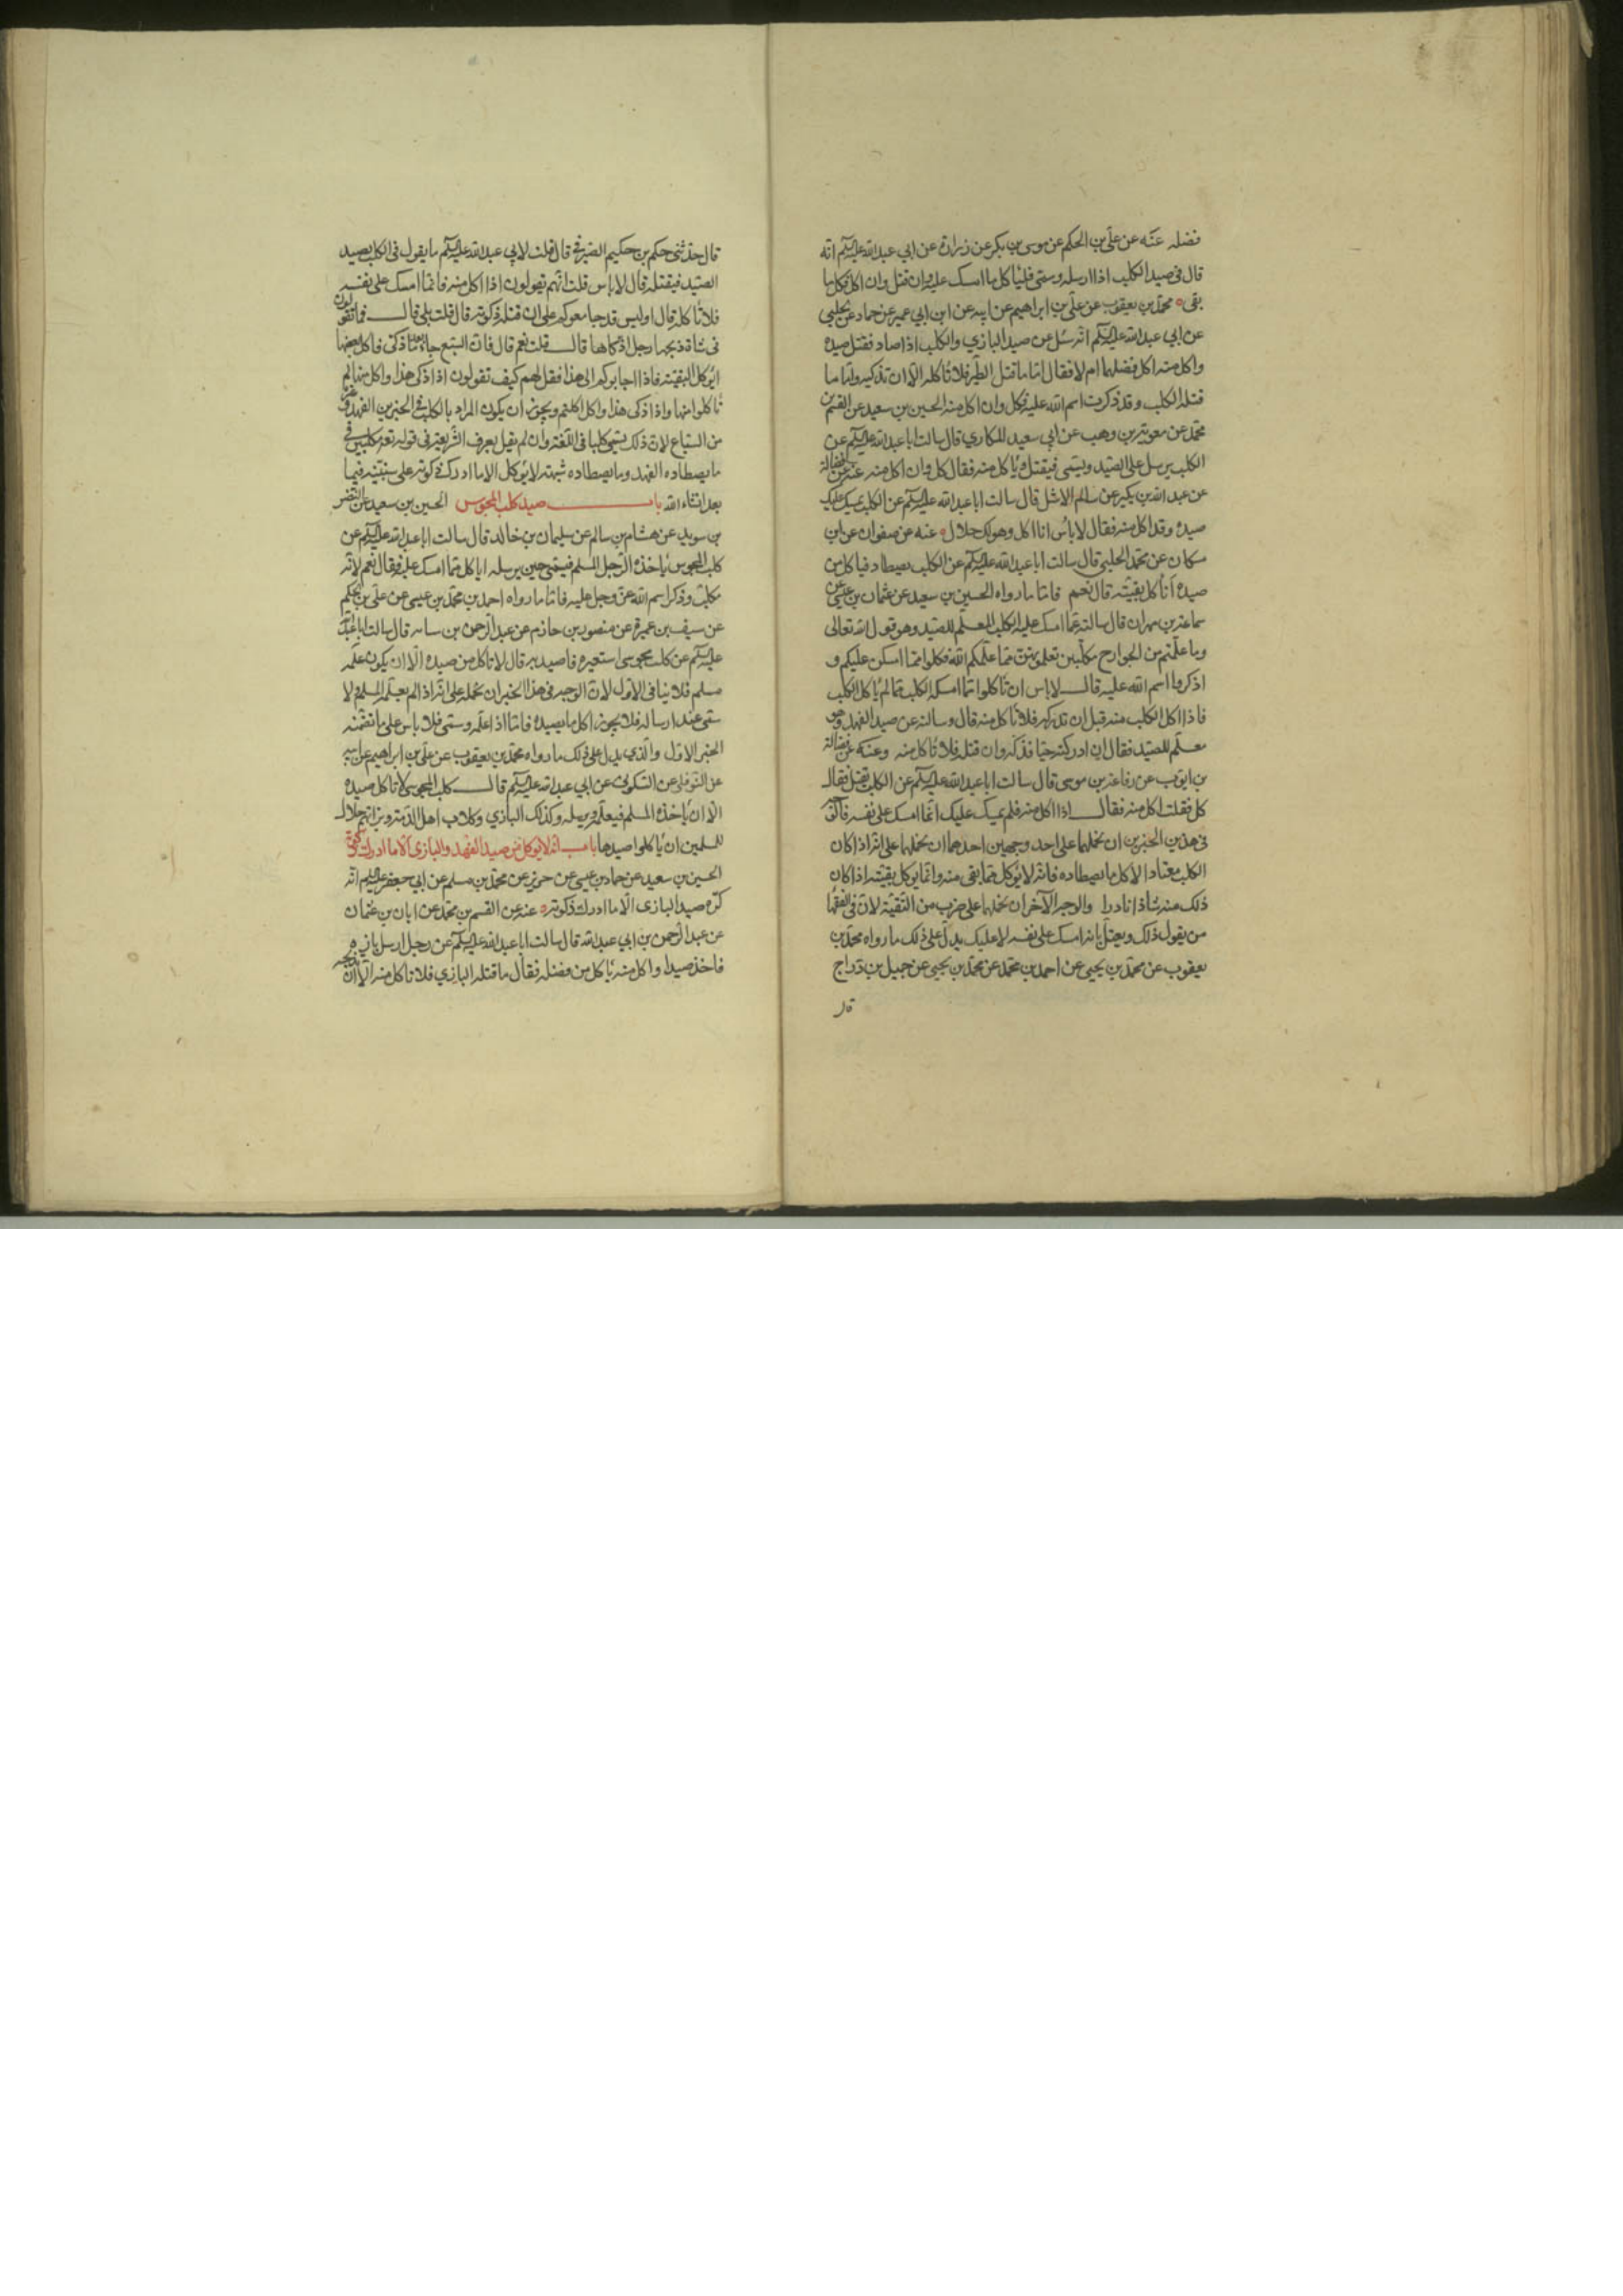 فضله عنه عن علي بن الحكم عن موسى بن بكر عن زرارة عن ابي عبد الله عليه السلم انه
قال في صيد الكلب اذا ارسله وسمى فلياكل ما امسك عليه وان قتل وان اكل فكل ما
بقي ۰ محمد بن يعقوب عن علي بن ابراهيم عن ابيه عن ابن ابي عمير عن حماد عن الحلبي
عن ابي عبد الله عليه السلم انه سئل عن صيد البازي والكلب اذا صاد فقتل صيده
واكل منه اكل فضلهما ام لا فقال اما ما قتل الطير فلا تاكله الا ان تذكيه واما ما
قتله الكلب وقد ذكرت اسم الله عليه فكل وان اكل منه الحسين بن سعيد عن القسم بن
محمد عن معوية بن وهب عن ابي سعيد المكاري قال سالت ابا عبد الله عليه السلم عن
الكلب يرسل على الصيد ويسمى فيقتل وياكل منه فقال كل وان اكل منه عنه عن فضالة
عن عبد الله بن بكير عن سالم الاشل قال سالت ابا عبد الله عليه السلم عن الكلب يمسك عليك
صيده وقد اكل منه فقال لا باس انما اكل وهو لك حلال ۰ عنه عن صفوان عن ابن
مسكان عن محمد الحلبي قال سالت ابا عبد الله عليه السلم عن الكلب يصطاد فياكل من
صيده اناكل بقيته قال نعم فاما ما رواه الحسين بن سعيد عن عثمان بن عيسى عن
سماعة بن مهران قال سالته عما امسك عليه الكلب المعلم للصيد وهو قول الله تعالى
وما علمتم من الجوارح مكلبين تعلمونهن مما علمكم الله فكلوا مما امسكن عليكم و
اذكروا اسم الله عليه قال لا باس ان تاكلوا مما امسك الكلب مما لم ياكل الكلب
فاذا اكل الكلب منه قبل ان تدركه فلا تاكل منه قال وسالته عن صيد الفهد وهو
معلم للصيد فقال ان ادركته حيا فذكه وان قتله فلا تاكل منه وعنه عن فضالة
بن ايوب عن رفاعة بن موسى قال سالت ابا عبد الله عليه السلم عن الكلب يقتل فقال
كل فقلت اكل منه فقال اذا اكل منه فلم يمسك عليك انما امسك على نفسه فالوجه
في هذين الخبرين ان نحملهما على احد وجهين احدهما ان نحملهما على انه اذا كان
الكلب معتادا لاكل ما يصطاده فانه لا يؤكل مما بقى منه وانما يؤكل بقيته اذا كان
ذلك منه شاذا نادرا والوجه الآخر ان نحملهما على ضرب من التقية لان في الفقهاء
من يقول ذلك ويعتل بانه امسك على نفسه لا عليك يدل على ذلك ما رواه محمد بن
يعقوب عن محمد بن يحيى عن احمد بن محمد عن محمد بن يحيى عن جميل بن دراج
قال
قال حدثني حكم بن حكيم الصيرفي قال قلت لابي عبد الله عليه السلم ما يقول في الكلب يصيد
الصيد فيقتله قال لا باس قلت انهم يقولون اذا اكل منه فانما امسك على نفسه
فلا تاكله قال اوليس قد جامعوكم على ان قتله ذكوته قال قلت بلى قال فما تقولون
في شاة ذبحها رجل اذكاها قال قلت نعم قال فان السبع جاء بعد ما ذكى فاكل بعضها
ايؤكل البقية فاذا اجابوكم الى هذا فقل لهم كيف تقولون اذا ذكى هذا واكل منها لم
تاكلوا منها واذا ذكى هذا واكل اكلتم ويجوز ان يكون المراد بالكلب في الخبرين الفهد وغيره
من السباع لان ذلك يسمى كلبا في اللغة وان لم يقل بعرف الشريعة في قوله تعه مكلبين في
ما يصطاده الفهد وما يصطاده شبهه لا يؤكل الا ما ادرك ذكوته على سنبينه فيما
بعد انشاء الله باب صيد كلب المجوس الحسين بن سعيد عن النضر
بن سويد عن هشام بن سالم عن سليمان بن خالد قال سالت ابا عبد الله عليه السلم عن
كلب المجوس ياخذه الرجل المسلم فيسمى حين يرسله اياكل مما امسك عليه فقال نعم لانه
مكلب وذكر اسم الله عز وجل عليه فاما ما رواه احمد بن محمد بن عيسى عن علي بن الحكم
عن سيف بن عميرة عن منصور بن حازم عن عبد الرحمن بن سيابه قال سالت ابا عبد الله
عليه السلم عن كلب مجوسي استعيره فاصيد به قال لا تاكل من صيده الا ان يكون علمه
مسلم فلا ينافى الاول لان الوجه في هذا الخبر ان نحمله على انه اذا لم يعلمه المسلم ولا
سمى عند ارساله فلا يجوز اكل ما يصيده فاما اذا علمه وسمى فلا باس على ما تضمنه
الخبر الاول والذي يدل على ذلك ما رواه محمد بن يعقوب عن علي بن ابراهيم عن ابيه
عن النوفلي عن السكوني عن ابي عبد الله عليه السلم قال كلب المجوسي لا تاكل صيده
الا ان ياخذه المسلم فيعلمه ويرسله وكذلك البازي وكلاب اهل الذمة وبزاتهم حلال
للمسلمين ان ياكلوا صيدها باب انه لا يؤكل من صيد الفهد والبازي الا ما ادرك ذكوته
الحسين بن سعيد عن حماد بن عيسى عن حريز عن محمد بن مسلم عن ابي جعفر عليه السلم انه
كره صيد البازي الا ما ادرك ذكوته ۰ عنه عن القسم بن محمد عن ابان بن عثمان
عن عبد الرحمن بن ابي عبد الله قال سالت ابا عبد الله عليه السلم عن رجل ارسل بازه
فاخذ صيدا واكل منه ناكل من فضله فقال ما قتله البازي فلا تاكل منه الا ان تذبحه